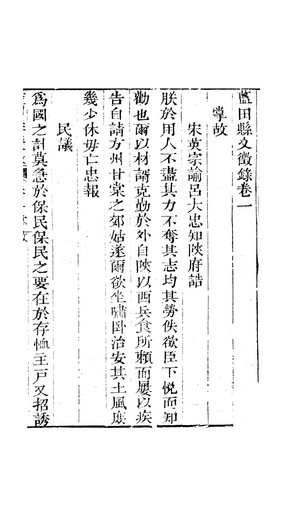 藍田縣文徵錄卷一
掌故
宋英宗諭呂大忠知陝府誥
朕於用人不盡其力不奪其志均其勞佚欲臣下悅而知
勸也爾以材諝克勤於外自陝以西兵食所賴而屢以疾
告自請方州甘棠之郊姑遂爾欲坐嘯臥治安其土風庶
幾少休毋亡忠報
民議
爲國之計莫急於保民保民之要在於存恤主戸又招誘